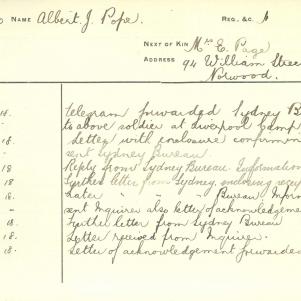 NAME Albert J. Pope. REG. &C. 6
NEXT OF KIN Mrs E. Page
ADDRESS 94 William Stree
Norwood.
18. Telegram forwarded Sydney B
to above soldier at Liverpool Camp
18. Letter with enclosure confirmin
sent Sydney Bureau.
18 Reply from Sydney Bureau. Information
18 Further letter from Sydney, enclosing
18. Later " " Bureau Infor
- sent Inquirer also letter of acknowledgeme
18. Further letter from Sydney Bureau
18. Letter received from Inquirer.
18. Letter of acknowledgement forwarded